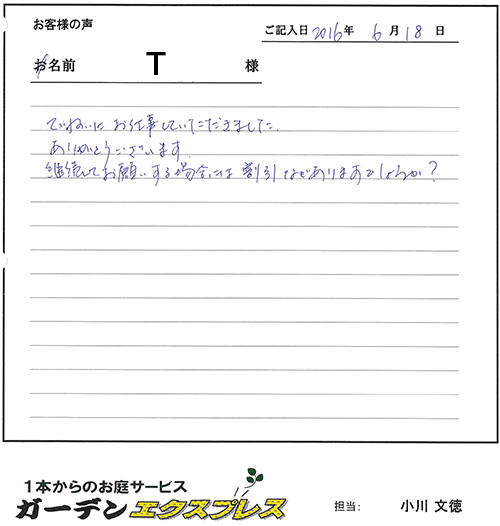 お客様の声
ご記入日 2016年 6月 18日
お名前 T 様
ていねいに お仕事していただきました.
ありがとうございます.
継続してお願いする場合には 割引などありますでしょうか?
1本からのお庭サービス
ガーデンエクスプレス
担当: 小川 文徳